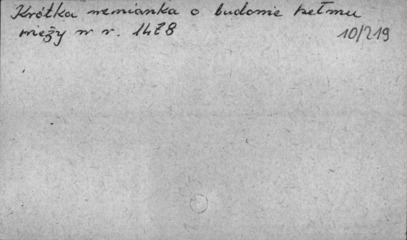 Krótka wzmianka o budowie hełmu
wieży w r. 1478
10/219